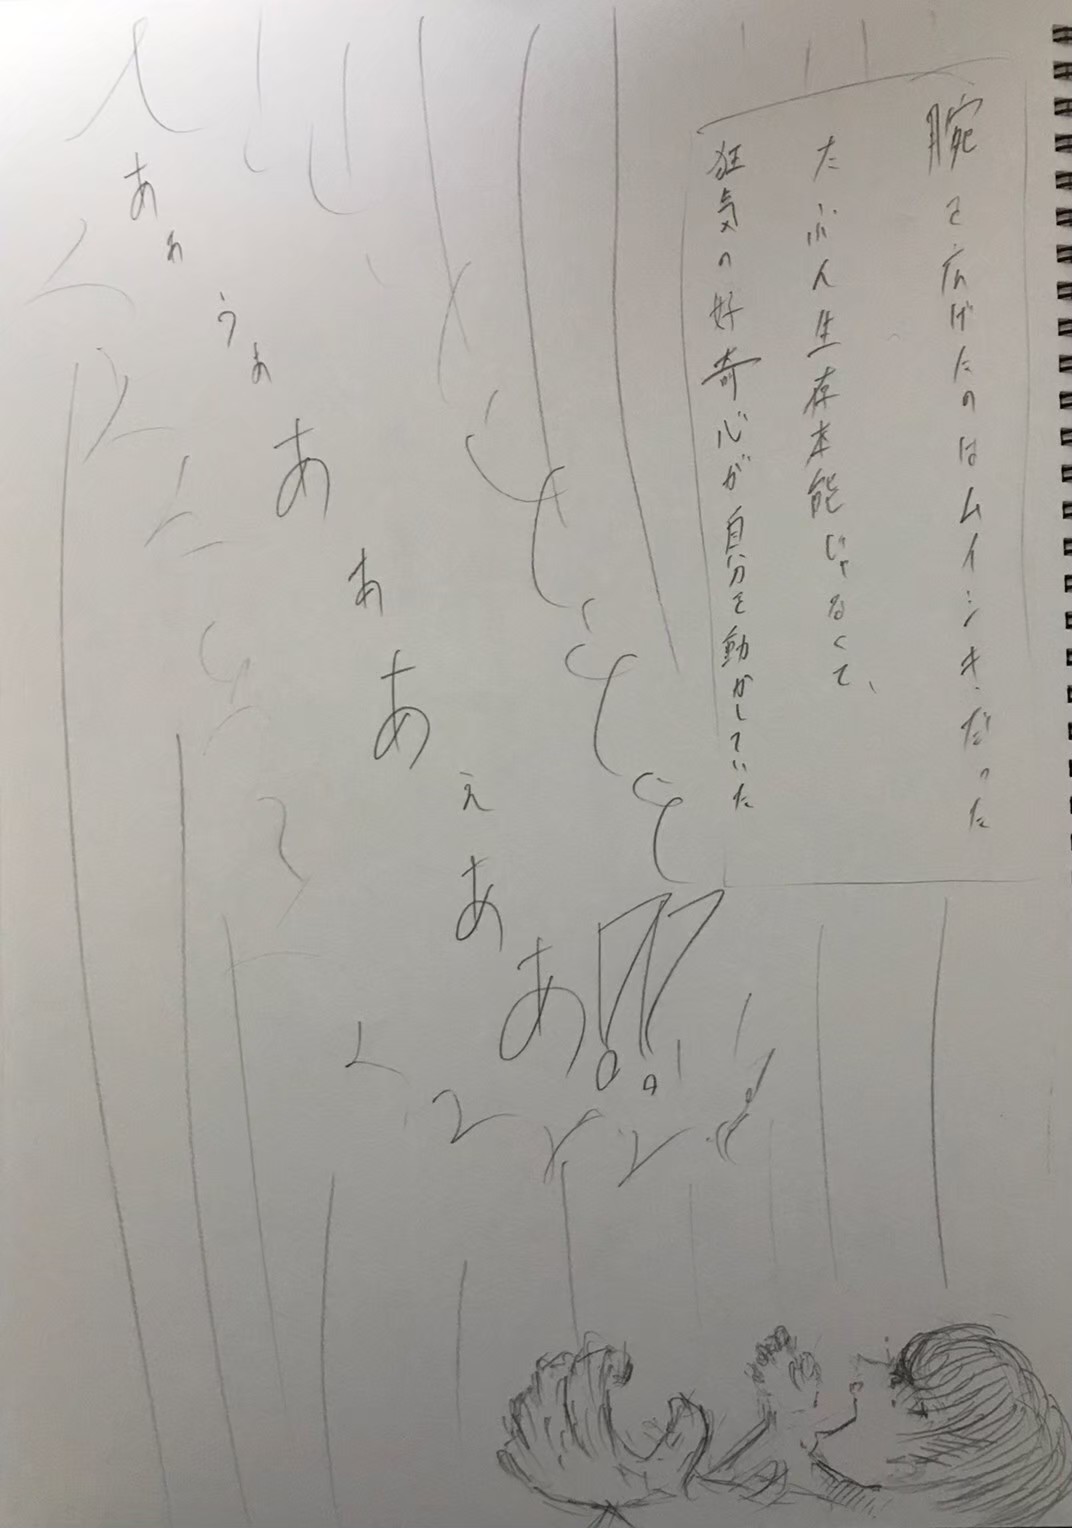 腕を広げたのはムイシキだった
たぶん生存本能じゃなくて、
狂気の好奇心が自分を動かしていた
あぁうぁあぁあぇああ!!